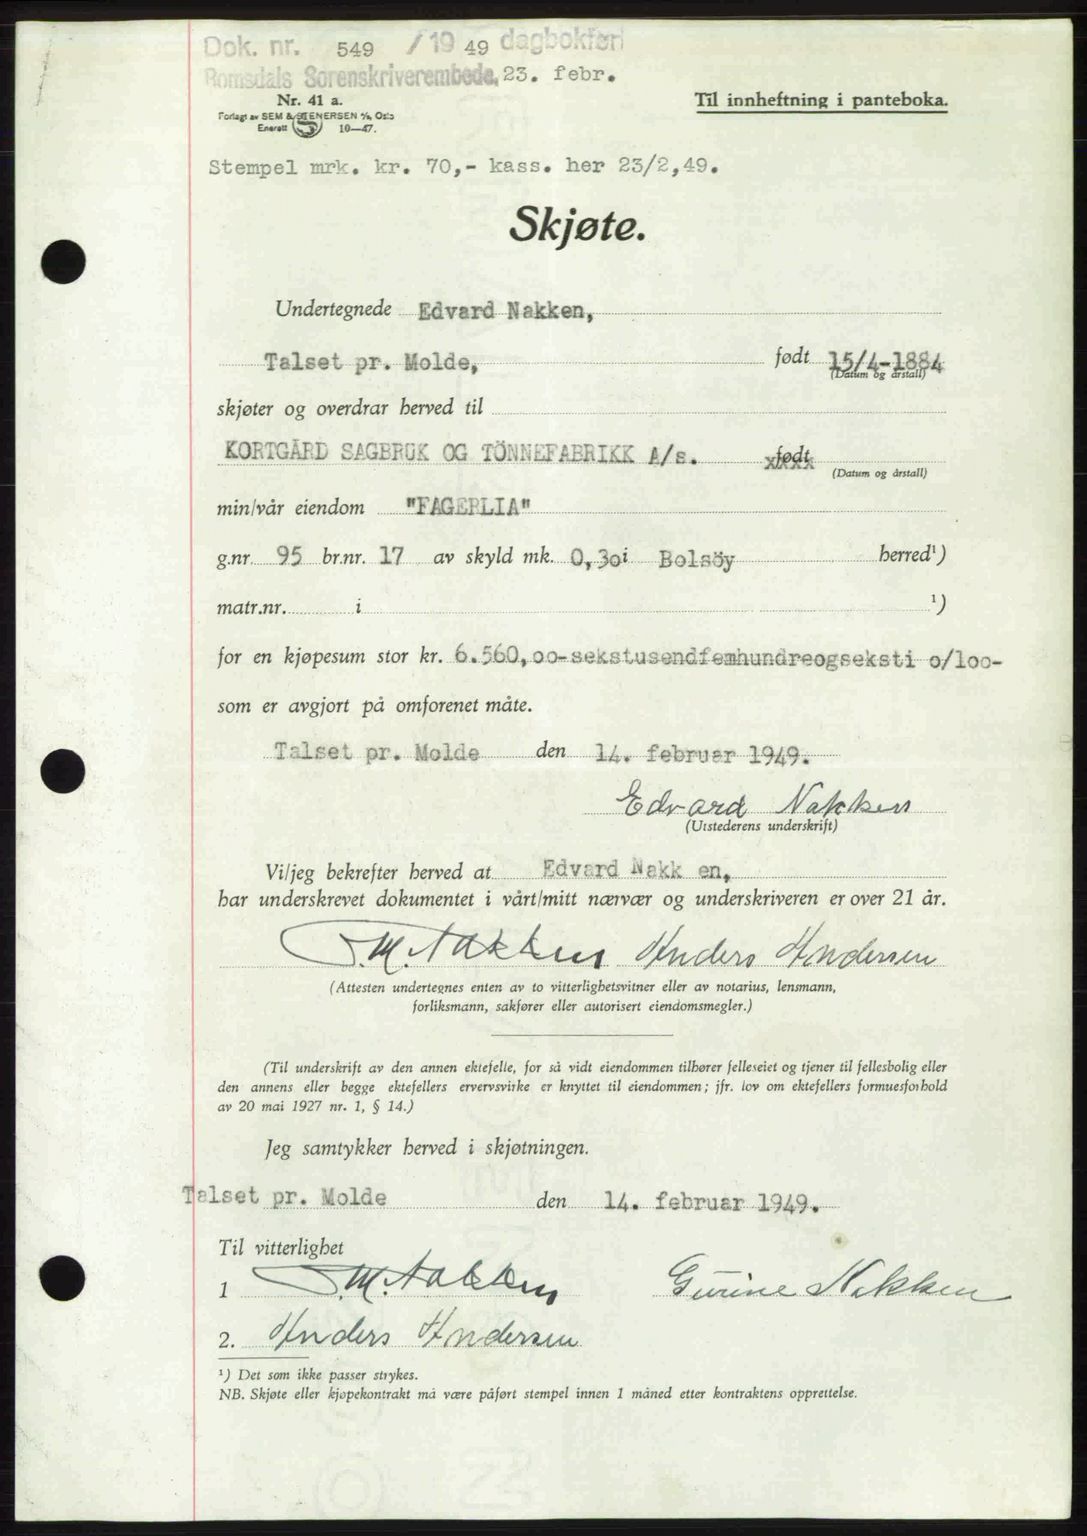 Dok. nr. 549 / 19 49 dagbokført
Romsdals Sorenskriverembede, 23. febr.
Nr. 41 a.
Forlagt av SEM & STENERSEN A/s, Oslo
Enerett 10—47.
Til innheftning i panteboka.
Stempel mrk. kr. 70,- kass. her 23/2,49.
Skjøte.
Undertegnede Edvard Nakken,
Talset pr. Molde, født 15/4-1884
(Datum og årstall)
skjøter og overdrar herved til
KORTGÅRD SAGBRUK OG TÖNNEFABRIKK A/s. født
(Datum og årstall)
min/vår eiendom "FAGERLIA"
g.nr 95 br.nr. 17 av skyld mk. 0,30 i Bolsöy herred¹)
matr.nr. i ¹)
for en kjøpesum stor kr. 6.560,oo-sekstusendfemhundreogseksti o/loo-
som er avgjort på omforenet måte.
Talset pr. Molde den 14. februar 1949.
Edvard Nakken
(Utstederens underskrift)
Vi/jeg bekrefter herved at Edvard Nakk en,
har underskrevet dokumentet i vårt/mitt nærvær og underskriveren er over 21 år.
M. Nakken Anders Andersen
(Attesten undertegnes enten av to vitterlighetsvitner eller av notarius, lensmann,
forliksmann, sakfører eller autorisert eiendomsmegler.)
(Til underskrift av den annen ektefelle, for så vidt eiendommen tilhører felleseiet og tjener til fellesbolig eller
den annens eller begge ektefellers ervervsvirke er knyttet til eiendommen; jfr. lov om ektefellers formuesforhold
av 20 mai 1927 nr. 1, § 14.)
Jeg samtykker herved i skjøtningen.
Talset pr. Molde den 14. februar 1949.
Til vitterlighet
1 M. Nakken Gurine Nakken
2. Anders Andersen
¹) Det som ikke passer strykes.
NB. Skjøte eller kjøpekontrakt må være påført stempel innen 1 måned etter kontraktens opprettelse.